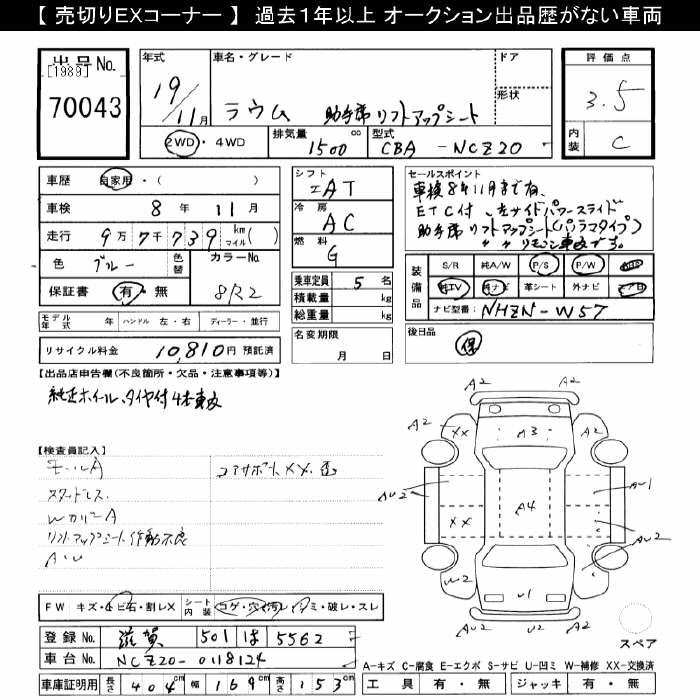 【 売切りEXコーナー 】 過去1年以上 オークション出品歴がない車両
出品No.
[1989]
70043
年式
19/11月
車名・グレード
ラウム 助手席リフトアップシート
ドア
形状
評価点
3.5
内装
C
2WD・4WD
排気量
1500
cc
型式
CBA - NCZ20
車歴 自家用・( )
車検 8年 11月
走行 9万7千739 km マイル( )
色 ブルー
色替
カラーNo.
8R2
保証書 有・無
シフト
エAT
冷房
AC
燃料
G
乗車定員 5 名
積載量 kg
総重量 kg
セールスポイント
車検8年11月まで有、
ETC付、左サイドパワースライド
助手席リフトアップシート(パノラマタイプ)
〃 〃 リモコン車改です。
装備品
S/R 純A/W P/S P/W ABS
純TV 純ナビ 革シート 外ナビ エアB
ナビ型番: NHZN-W57
モデル年式 年 ハンドル 左・右 ディーラー・並行
リサイクル料金 10,810円 預託済
名変期限
月 日
後日品
保
【出品店申告欄(不良箇所・欠品・注意事項等)】
純正ホイール、タイヤ付4本車改
【検査員記入】
モールA
コアサポートXX.歪
スタッドレス
WカバーA
リフトアップシート作動不良
A・U
A2
A2
A2
XX
A3
A2
AU2
A4
AU1
XX
AU2
W2
U1
U2
A2
スペア
FW キズ・ヒビ石・割レX
シート内装
コゲ・穴・汚レ・シミ・破レ・スレ
登録No. 滋賀 501 ほ 5562
車台No. NCZ20-0118124
車庫証明用 長さ 404cm 幅 169cm 高さ 153cm
A-キズ C-腐食 E-エクボ S-サビ U-凹ミ W-補修 XX-交換済
工具 有・無 ジャッキ 有・無